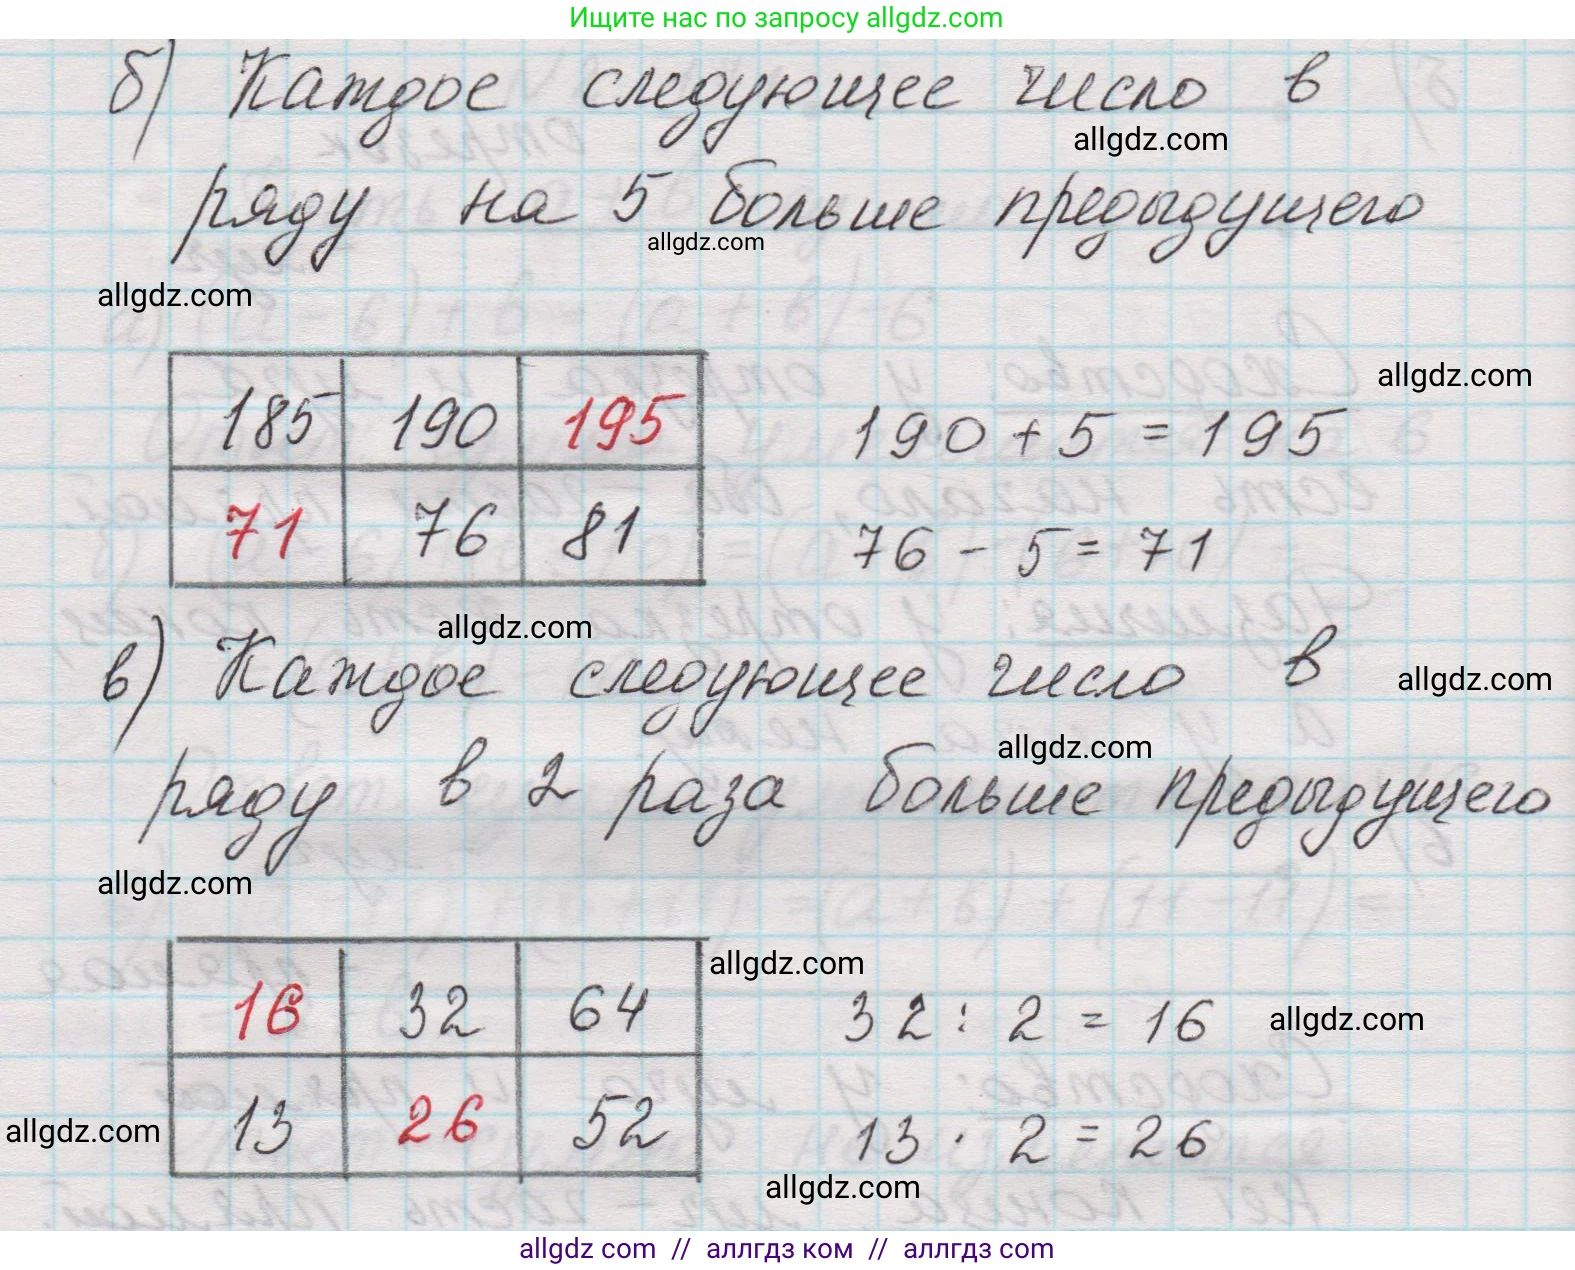 Ищите нас по запросу allgdz.com
б) Каждое следующее число в
allgdz.com
ряду на 5 больше предыдущего
allgdz.com
allgdz.com
allgdz.com
185 190 195 190 + 5 = 195
71 76 81 76 - 5 = 71
allgdz.com
в) Каждое следующее число в
allgdz.com
allgdz.com
ряду в 2 раза больше предыдущего
allgdz.com
allgdz.com
16 32 64 32 : 2 = 16 allgdz.com
allgdz.com 13 26 52 13 · 2 = 26
allgdz.com
allgdz com // аллгдз ком // allgdz com